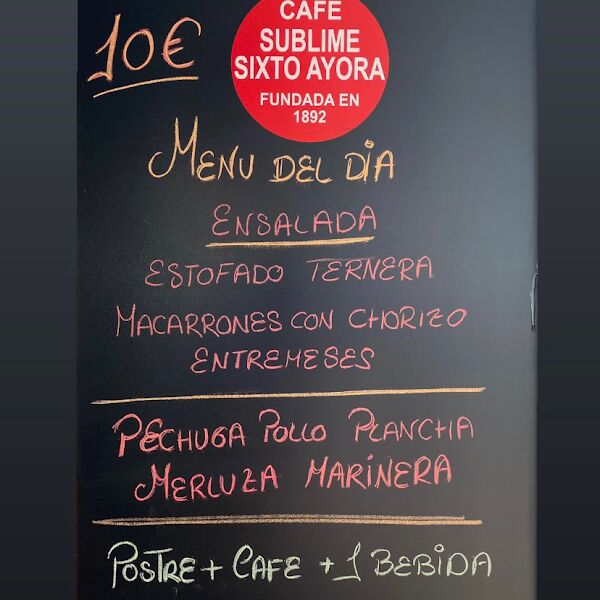 10€
CAFE
SUBLIME
SIXTO AYORA
FUNDADA EN
1892
MENU DEL DIA
ENSALADA
ESTOFADO TERNERA
MACARRONES CON CHORIZO
ENTREMESES
PECHUGA POLLO PLANCHA
MERLUZA MARINERA
POSTRE + CAFE + 1 BEBIDA